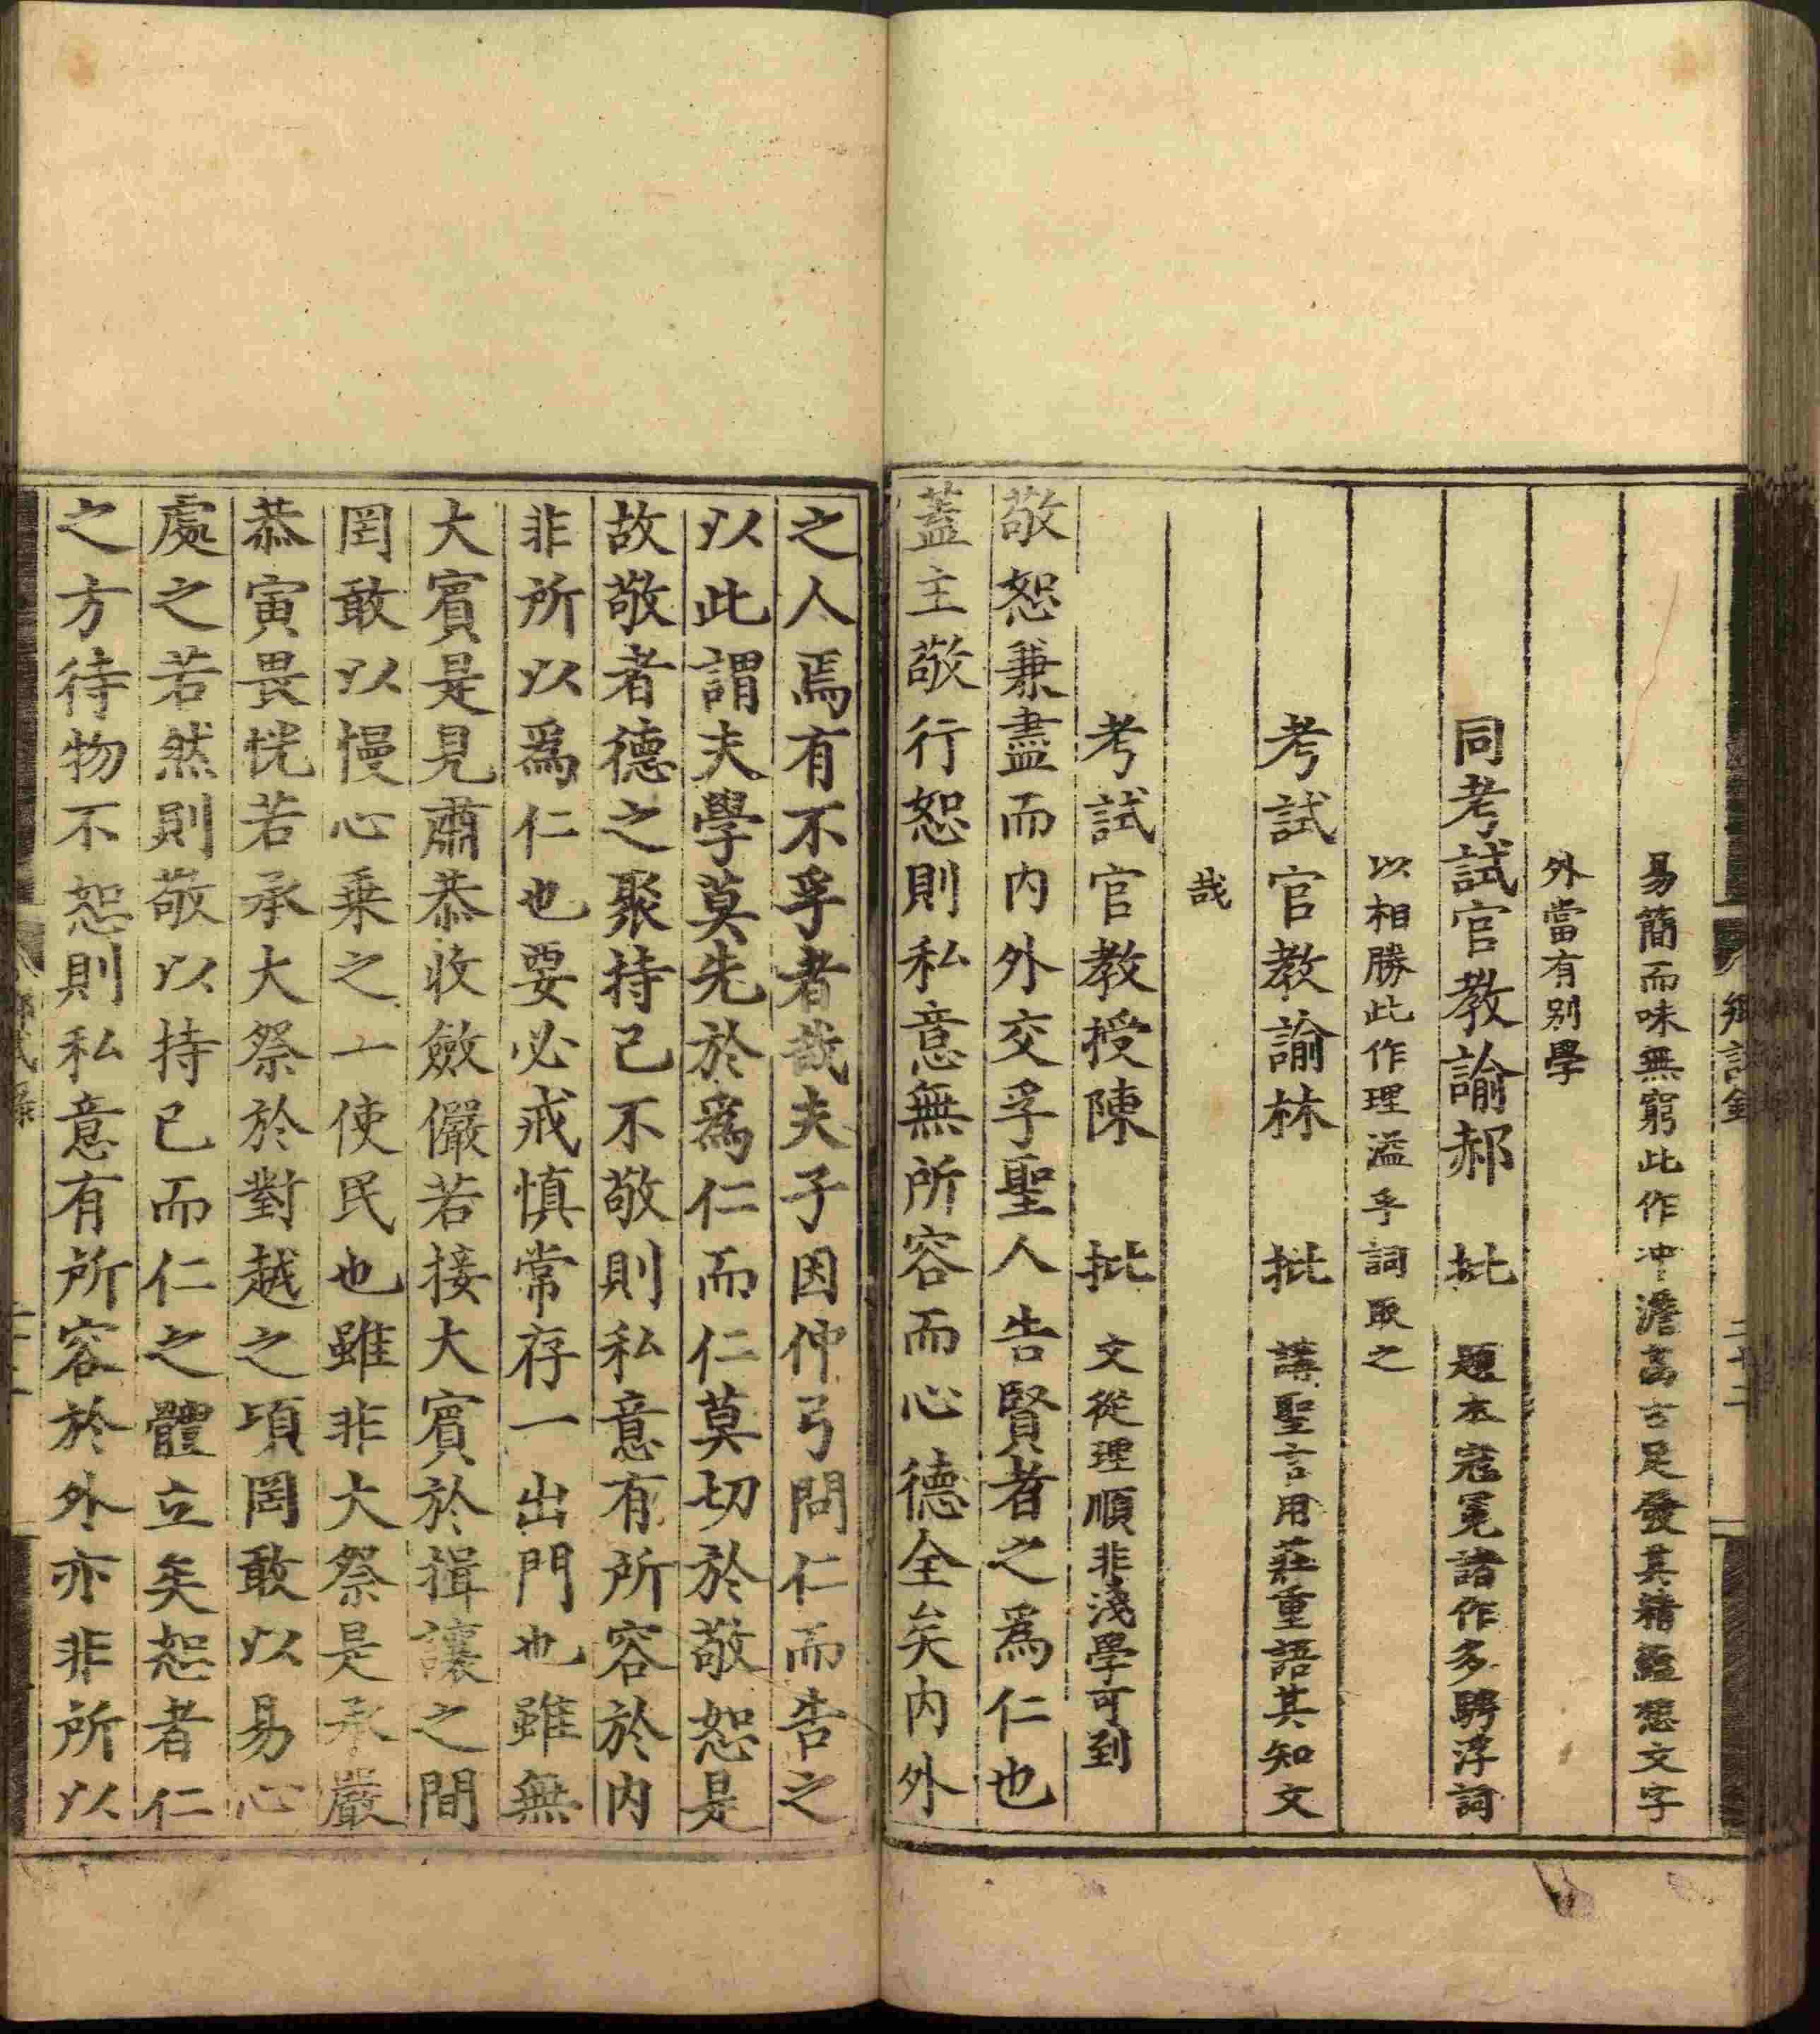 易簡而味無窮此作冲澹高古足發其精蘊想文字
外當有别學
同考試官教諭郝　批　題本冠冕諸作多騁浮詞
以相勝此作理溢乎詞取之
考試官教諭林　批　講聖言用莊重語其知文
哉
考試官教授陳　批　文從理順非淺學可到
敬恕兼盡而内外交孚聖人告賢者之爲仁也
蓋主敬行恕則私意無所容而心德全矣内外
之人焉有不孚者哉夫子因仲弓問仁而告之
以此謂夫學莫先於爲仁而仁莫切於敬恕是
故敬者德之聚持己不敬則私意有所容於内
非所以爲仁也要必戒慎常存一出門也雖無
大賓是見肅恭收斂儼若接大賓於揖讓之間
罔敢以慢心乗之一使民也雖非大祭是承嚴
恭寅畏恍若承大祭於對越之頃罔敢以易心
處之若然則敬以持已而仁之體立矣恕者仁
之方待物不恕則私意有所容於外亦非所以